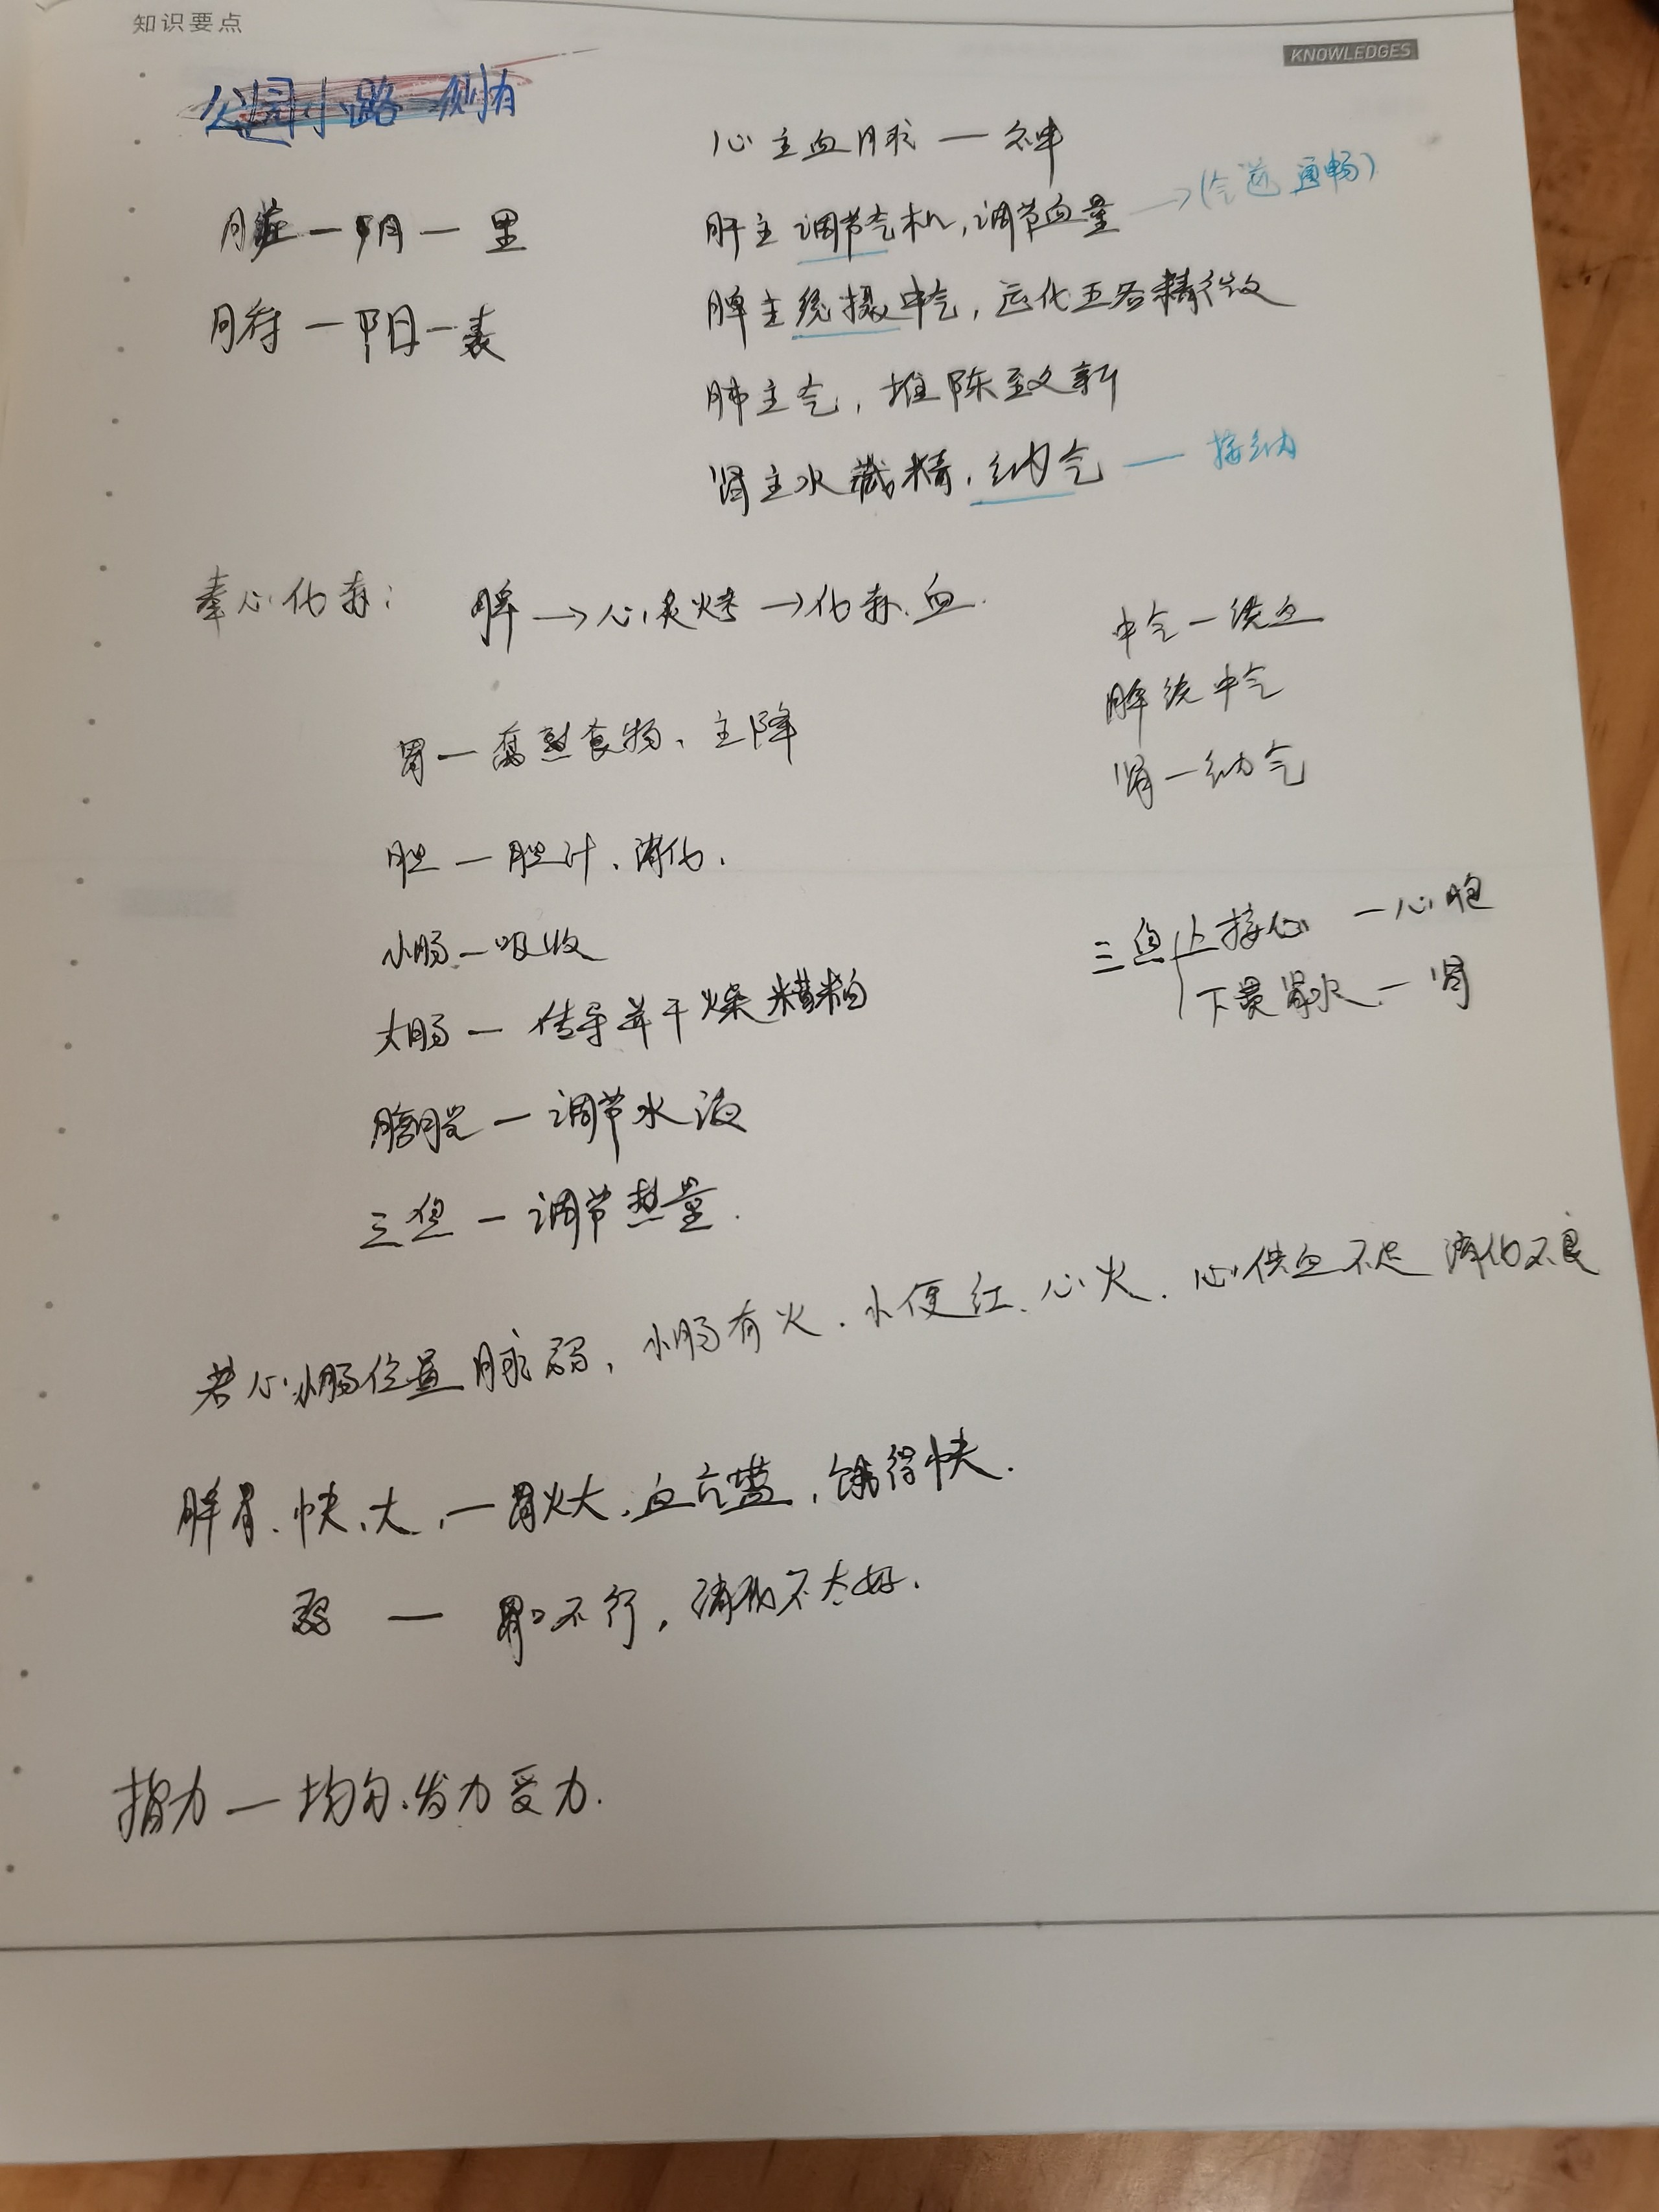 知识要点
KNOWLEDGES
公园小路一侧有
脏一阴一里
腑一阳一表
心主血脉一神
肝主调节气机,调节血量 →(气道通畅)
脾主统摄中气,运化五谷精微
肺主气,推陈致新
肾主水藏精.纳气 — 接纳
奉心化赤: 脾→心炙烤→化赤.血.
中气一统血
脾统中气
肾一纳气
胃一腐熟食物、主降
胆一胆汁、消化.
小肠一吸收
大肠一传导并干燥糟粕
膀胱一调节水液
三焦一调节热量.
三焦 上接心 一心胞
下贯肾水一肾
若心.小肠位置脉弱,小肠有火.小便红.心火.心供血不足 消化不良
脾胃.快、大,一胃火大.血亢盛,饿得快.
弱 — 胃口不行,消化不太好.
指力一均匀.发力受力.